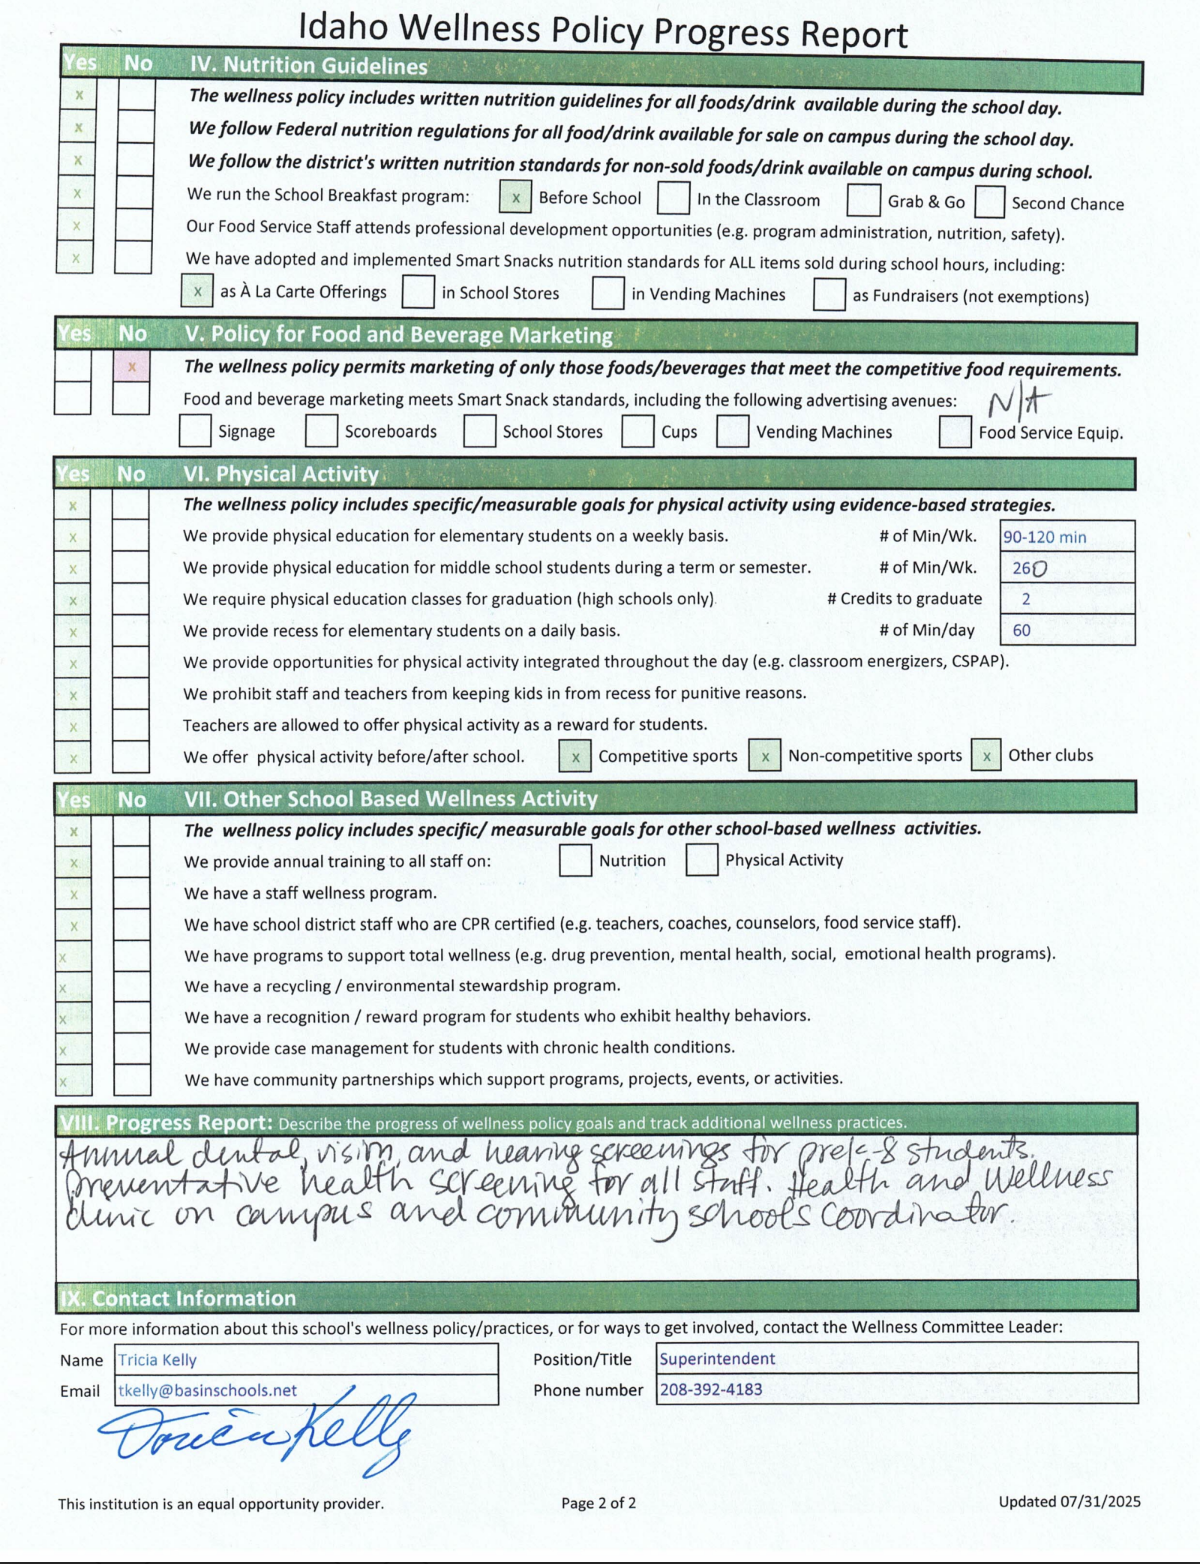 Idaho Wellness Policy Progress Report
Yes No IV. Nutrition Guidelines
x The wellness policy includes written nutrition guidelines for all foods/drink available during the school day.
x We follow Federal nutrition regulations for all food/drink available for sale on campus during the school day.
x We follow the district's written nutrition standards for non-sold foods/drink available on campus during school.
x We run the School Breakfast program: x Before School In the Classroom Grab & Go Second Chance
x Our Food Service Staff attends professional development opportunities (e.g. program administration, nutrition, safety).
x We have adopted and implemented Smart Snacks nutrition standards for ALL items sold during school hours, including:
x as À La Carte Offerings in School Stores in Vending Machines as Fundraisers (not exemptions)
Yes No V. Policy for Food and Beverage Marketing
x The wellness policy permits marketing of only those foods/beverages that meet the competitive food requirements.
Food and beverage marketing meets Smart Snack standards, including the following advertising avenues: N/A
Signage Scoreboards School Stores Cups Vending Machines Food Service Equip.
Yes No VI. Physical Activity
x The wellness policy includes specific/measurable goals for physical activity using evidence-based strategies.
x We provide physical education for elementary students on a weekly basis. # of Min/Wk. 90-120 min
x We provide physical education for middle school students during a term or semester. # of Min/Wk. 260
x We require physical education classes for graduation (high schools only) # Credits to graduate 2
x We provide recess for elementary students on a daily basis. # of Min/day 60
x We provide opportunities for physical activity integrated throughout the day (e.g. classroom energizers, CSPAP).
x We prohibit staff and teachers from keeping kids in from recess for punitive reasons.
x Teachers are allowed to offer physical activity as a reward for students.
x We offer physical activity before/after school. x Competitive sports x Non-competitive sports x Other clubs
Yes No VII. Other School Based Wellness Activity
x The wellness policy includes specific/ measurable goals for other school-based wellness activities.
x We provide annual training to all staff on: Nutrition Physical Activity
x We have a staff wellness program.
x We have school district staff who are CPR certified (e.g. teachers, coaches, counselors, food service staff).
x We have programs to support total wellness (e.g. drug prevention, mental health, social, emotional health programs).
x We have a recycling / environmental stewardship program.
x We have a recognition / reward program for students who exhibit healthy behaviors.
x We provide case management for students with chronic health conditions.
x We have community partnerships which support programs, projects, events, or activities.
VIII. Progress Report: Describe the progress of wellness policy goals and track additional wellness practices.
Annual dental, vision, and hearing screenings for prek-8 students.
Preventative health screening for all staff. Health and Wellness
clinic on campus and community schools coordinator.
IX. Contact Information
For more information about this school's wellness policy/practices, or for ways to get involved, contact the Wellness Committee Leader:
Name Tricia Kelly Position/Title Superintendent
Email tkelly@basinschools.net Phone number 208-392-4183
This institution is an equal opportunity provider. Page 2 of 2 Updated 07/31/2025